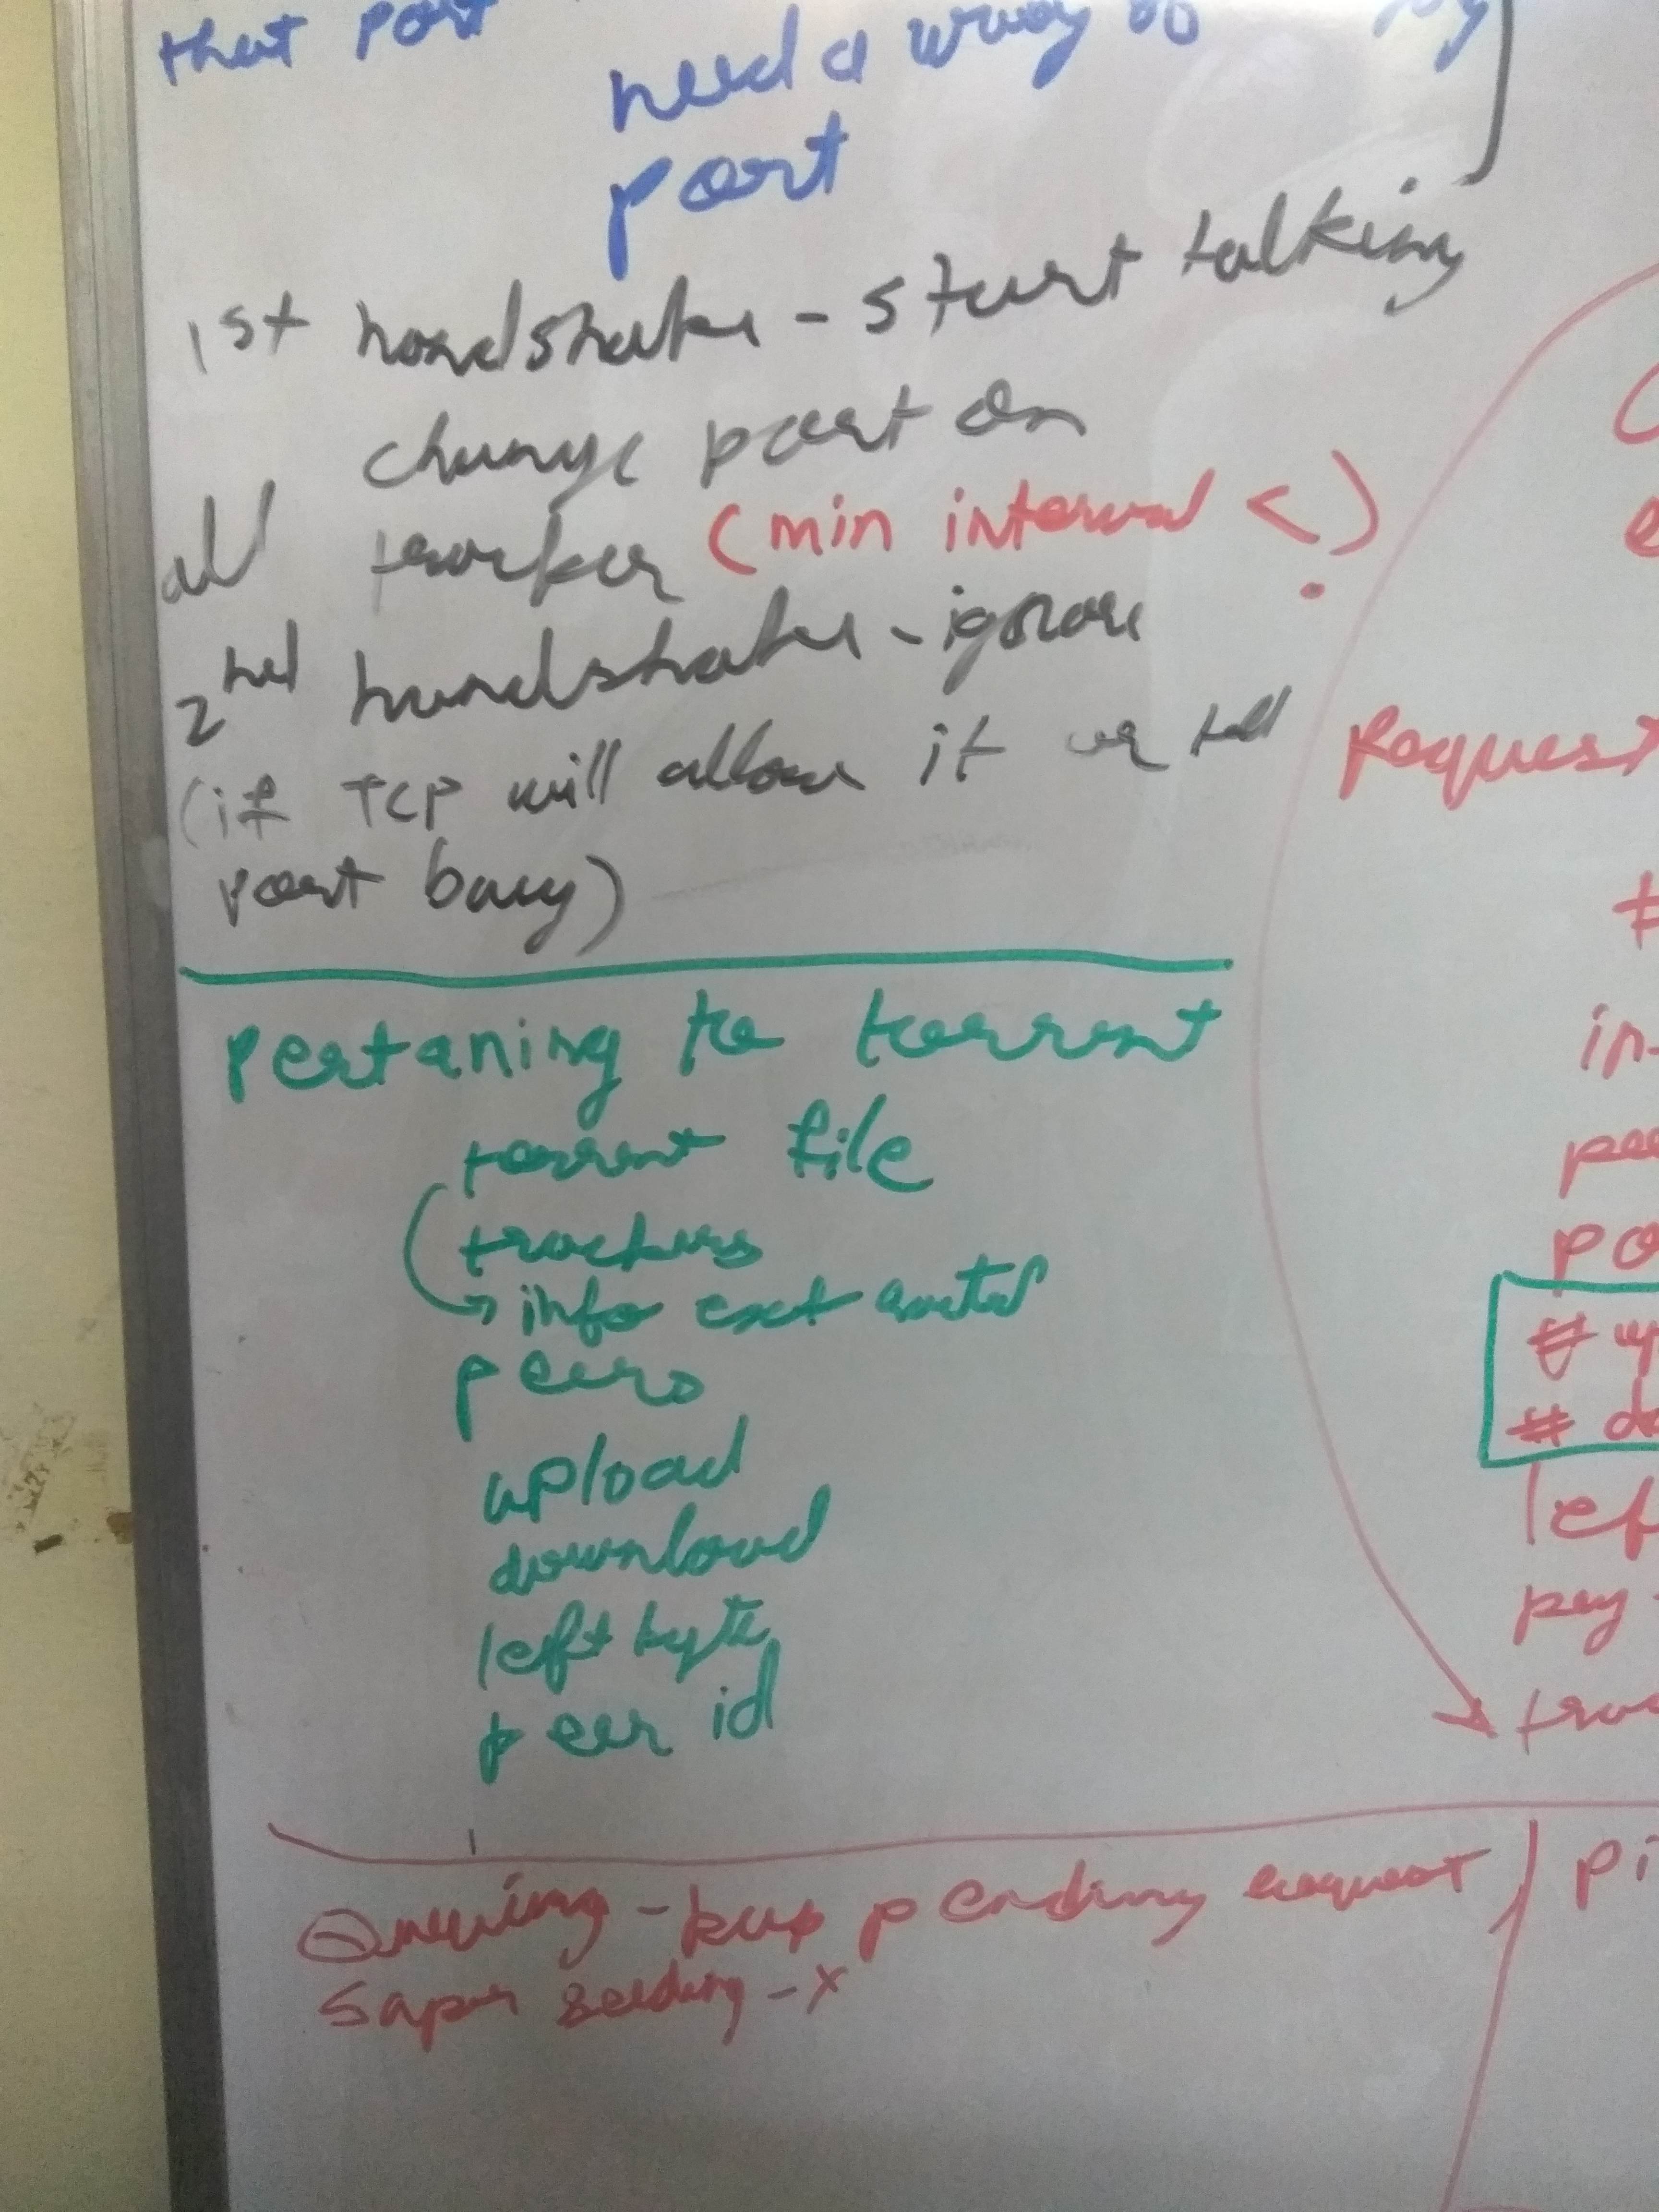 that port
need a way to
port
1st handshake - start talking
change port on
all tracker (min interval <)
2nd handshake - ignore
(if TCP will allow it or tell
port busy)
Pertaning to torrent
torrent file
trackers
info ext
peers
upload
download
left byte
peer id
Queuing - keep pending request
Super seeding - x
Request
in
po
# up
# do
lef
pi